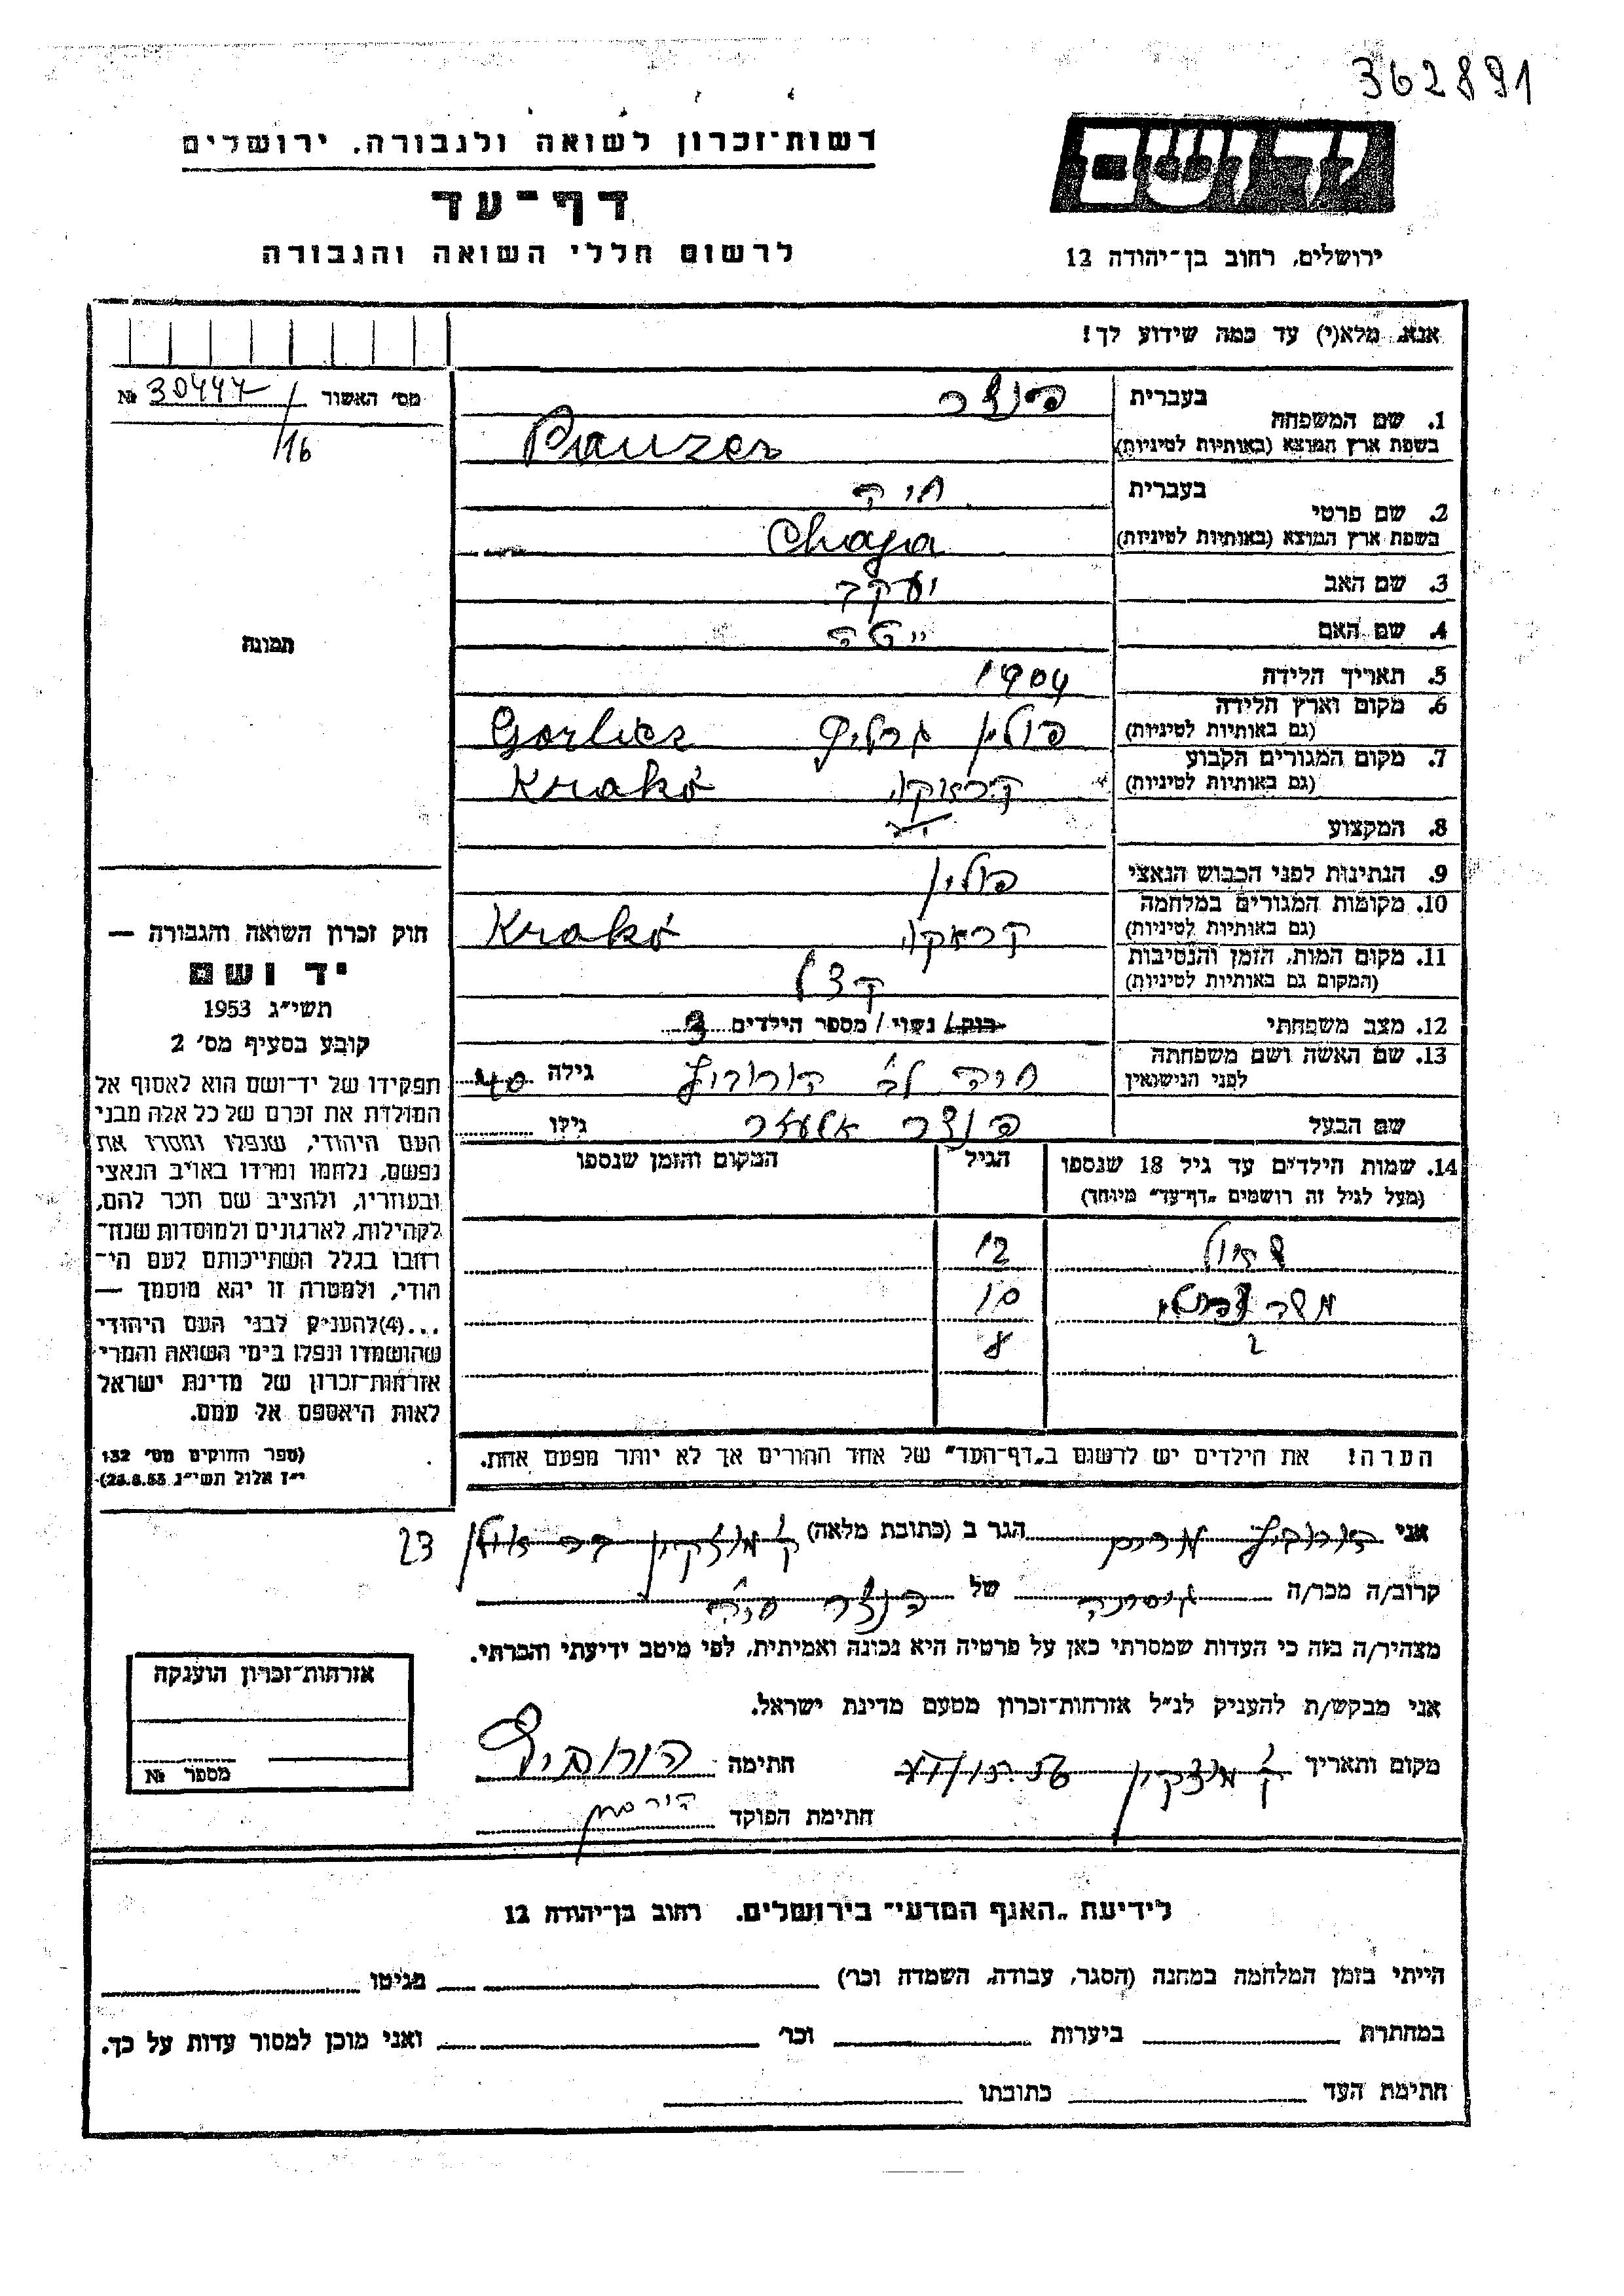 362891
רשות־זכרון לשואה ולגבורה, ירושלים
יד ושם
דף־עד
לרשום חללי השואה והגבורה
ירושלים, רחוב בן־יהודה 12
אנא, מלא(י) עד כמה שידוע לך!
מס' האשור № 30447/16
1. שם המשפחה
בעברית פנצר
בשפת ארץ המוצא (באותיות לטיניות) Panzer
2. שם פרטי
בעברית חיה
בשפת ארץ המוצא (באותיות לטיניות) Chaja
3. שם האב יעקב
4. שם האם ייטה
תמונה
5. תאריך הלידה 1904
6. מקום וארץ הלידה
(גם באותיות לטיניות) פולין גרליץ Gorlice
7. מקום המגורים הקבוע
(גם באותיות לטיניות) קראקוי Krakó
8. המקצוע
9. הנתינות לפני הכבוש הנאצי פולין
10. מקומות המגורים במלחמה
(גם באותיות לטיניות) קראקוי Krakó
11. מקום המות, הזמן והנסיבות
(המקום גם באותיות לטיניות)
12. מצב משפחתי רווק / נשוי / מספר הילדים 3
13. שם האשה ושם משפחתה
לפני הנישואין חיה לבית הורוביץ גילה 40
שם הבעל פנצר אלעזר גילו
14. שמות הילדים עד גיל 18 שנספו
(מעל לגיל זה רושמים „דף־עד" מיוחד)
הגיל
המקום והזמן שנספו
שאול 12
משה 10
8
הערה! את הילדים יש לרשום ב„דף־העד" של אחד ההורים אך לא יותר מפעם אחת.
חוק זכרון השואה והגבורה —
יד ושם
תשי"ג 1953
קובע בסעיף מס' 2
תפקידו של יד־ושם הוא לאסוף אל
המולדת את זכרם של כל אלה מבני
העם היהודי, שנפלו ומסרו את
נפשם, נלחמו ומרדו באויב הנאצי
ובעוזריו, ולהציב שם וזכר להם,
לקהילות, לארגונים ולמוסדות שנח־
רבו בגלל השתייכותם לעם הי־
הודי, ולמטרה זו יהא מוסמך —
...(4)להעניק לבני העם היהודי
שהושמדו ונפלו בימי השואה והמרי
אזרחות־זכרון של מדינת ישראל
לאות היאספם אל עמם.
(ספר החוקים מס' 132
י"ז אלול תשי"ג 28.8.53)
אני הורוביץ מרים הגר ב (כתובת מלאה) ק' מוצקין 23
קרוב/ה מכר/ה גיסתה של פנצר חיה
מצהיר/ה בזה כי העדות שמסרתי כאן על פרטיה היא נכונה ואמיתית, לפי מיטב ידיעתי והכרתי.
אני מבקש/ת להעניק לנ"ל אזרחות־זכרון מטעם מדינת ישראל.
מקום ותאריך ק' מוצקין חתימה הורוביץ
חתימת הפוקד
אזרחות־זכרון הוענקה
מספר №
לידיעת „האגף המדעי" בירושלים, רחוב בן־יהודה 12
הייתי בזמן המלחמה במחנה (הסגר, עבודה, השמדה וכו') בגיטו
במחתרת ביערות וכו' ואני מוכן למסור עדות על כך.
חתימת העד כתובתו